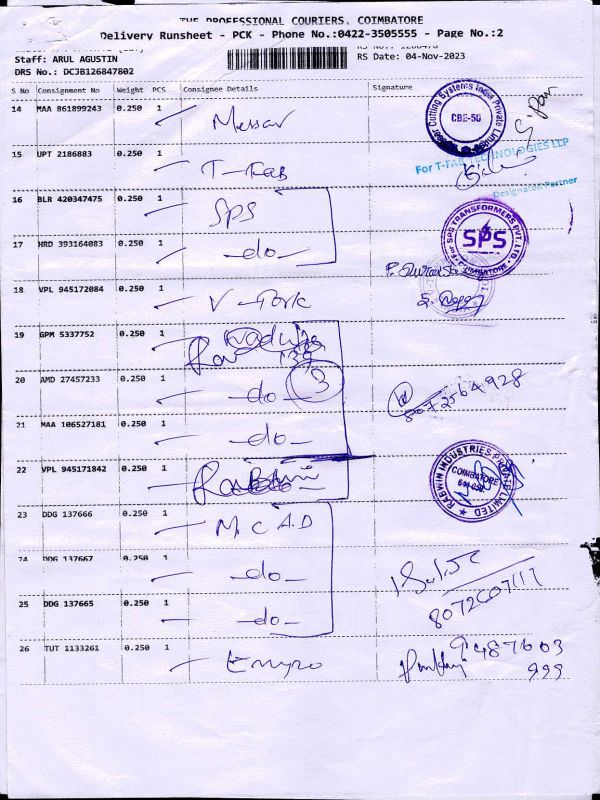 THE PROFESSIONAL COURIERS, COIMBATORE
Delivery Runsheet - PCK - Phone No.:0422-3505555 - Page No.:2
Staff: ARUL AGUSTIN
RS Date: 04-Nov-2023
DRS No.: DCJB126847802
S No Consignment No Weight PCS Consignee Details Signature
14 MAA 861899243 0.250 1 Messar
CBE-50
15 UPT 2186883 0.250 1 T-Fab
For T-FAB TECHNOLOGIES LLP
Designated Partner
16 BLR 420347475 0.250 1 SPS
For SPS TRANSFORMERS PVT. LTD.
SPS
COIMBATORE
17 HRD 393164083 0.250 1 -do-
18 VPL 945172084 0.250 1 V-Tork
19 GPM 5337752 0.250 1
20 AMD 27457233 0.250 1 -do- 3
8072564928
21 MAA 106527181 0.250 1 -do-
22 VPL 945171842 0.250 1
RABWIN INDUSTRIES PRIVATE LIMITED
COIMBATORE
23 DDG 137666 0.250 1 M C A D
24 DDG 137667 0.250 1 -do-
25 DDG 137665 0.250 1 -do-
26 TUT 1133261 0.250 1
9487603
999